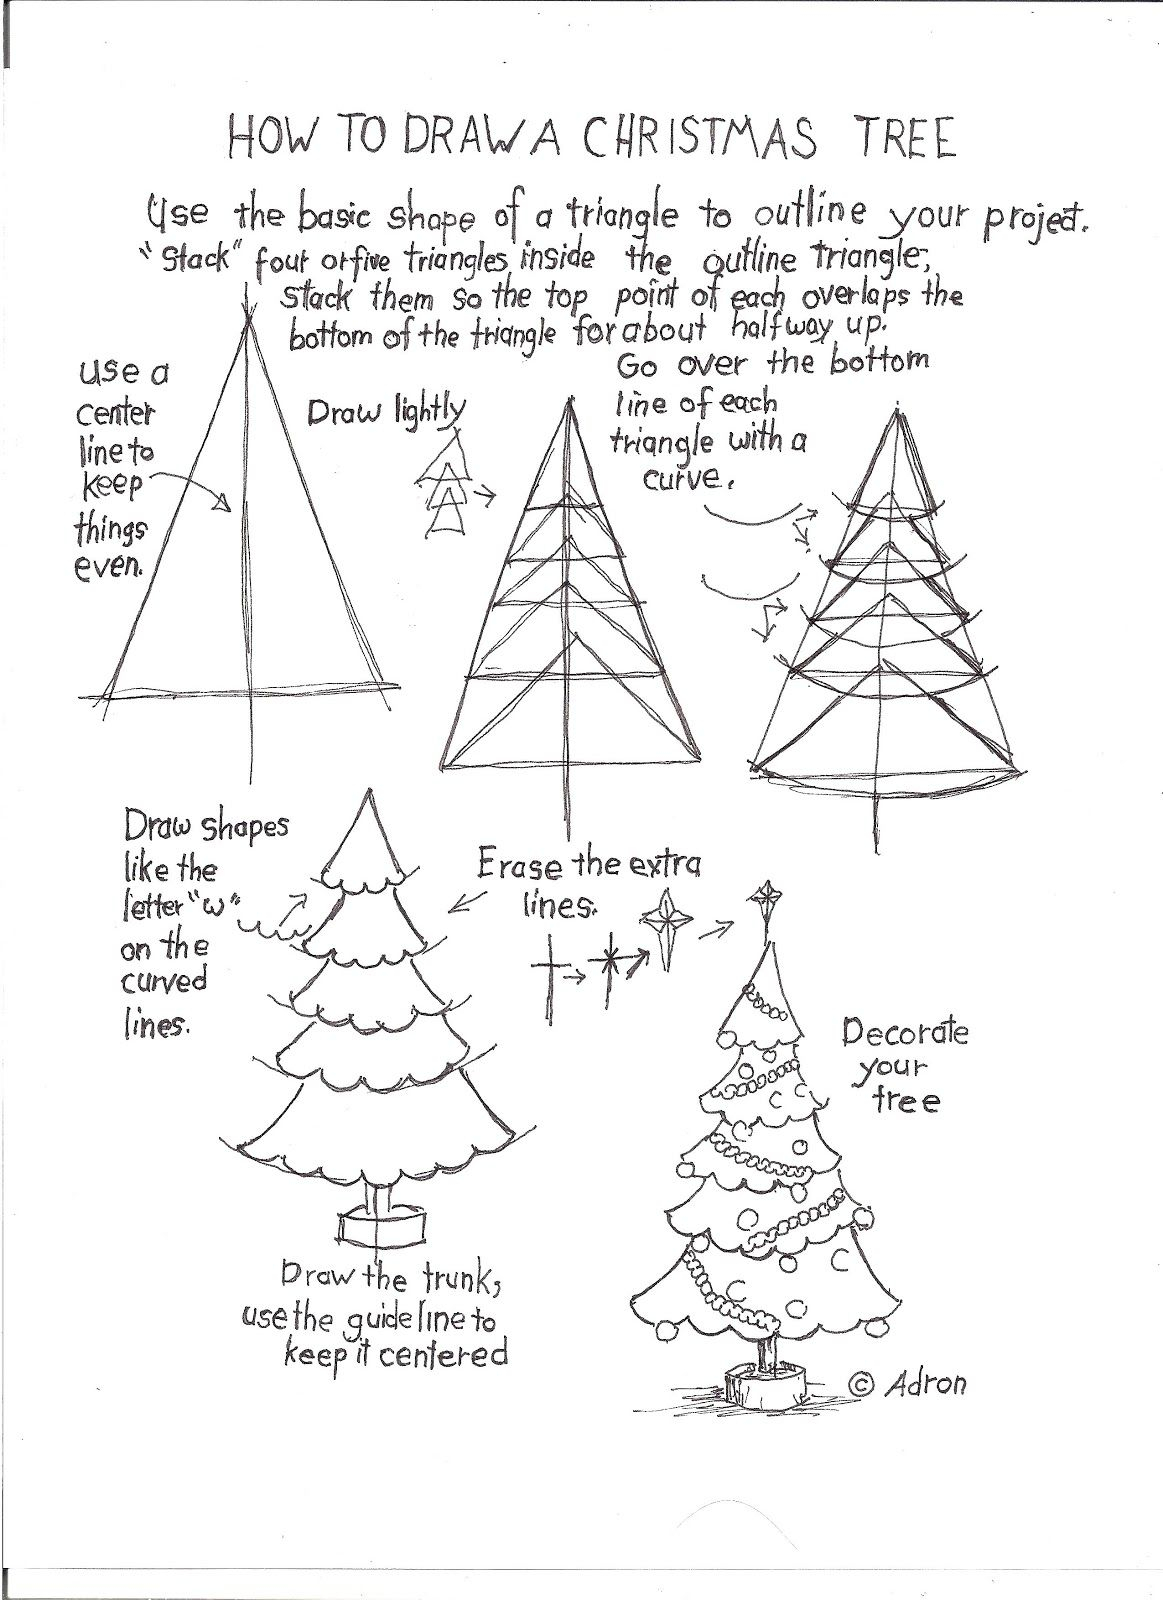 HOW TO DRAW A CHRISTMAS TREE
Use the basic shape of a triangle to outline your project.
"Stack" four or five triangles inside the outline triangle,
stack them so the top point of each overlaps the
bottom of the triangle for about halfway up.
use a
center
line to
keep
things
even.
Draw lightly
Go over the bottom
line of each
triangle with a
curve.
Draw shapes
like the
letter "w"
on the
curved
lines.
Erase the extra
lines.
Decorate
your
tree
Draw the trunk,
use the guideline to
keep it centered
© Adron